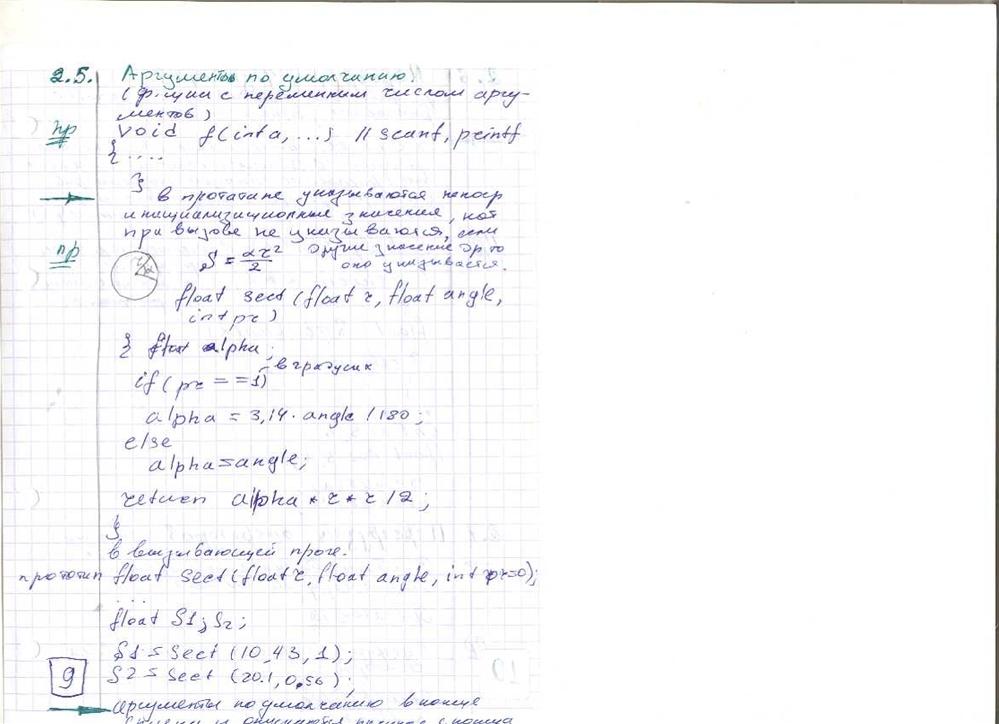 2.5. Аргументы по умолчанию.
(ф-ции с переменным числом аргу-
ментов)
пр void f(int a, ...) // scanf, printf
{ ....
}
→ в прототипе указываются непоср
инициализиционные значения, кот
при вызове не указываются, если
другие значение др то
оно указывается.
пр S = αr²/2
float sect (float r, float angle,
int pr)
{ float alpha;
if (pr == 1) - в градусах
alpha = 3,14 · angle / 180;
else
alpha = angle;
return alpha * r * r / 2;
}
в вызывающей проге.
прототип float sect (float r, float angle, int pr=0);
....
float S1, S2;
S1 = sect (10, 43, 1);
S2 = sect (20.1, 0.56);
9
→ аргументы по умолчанию в конце